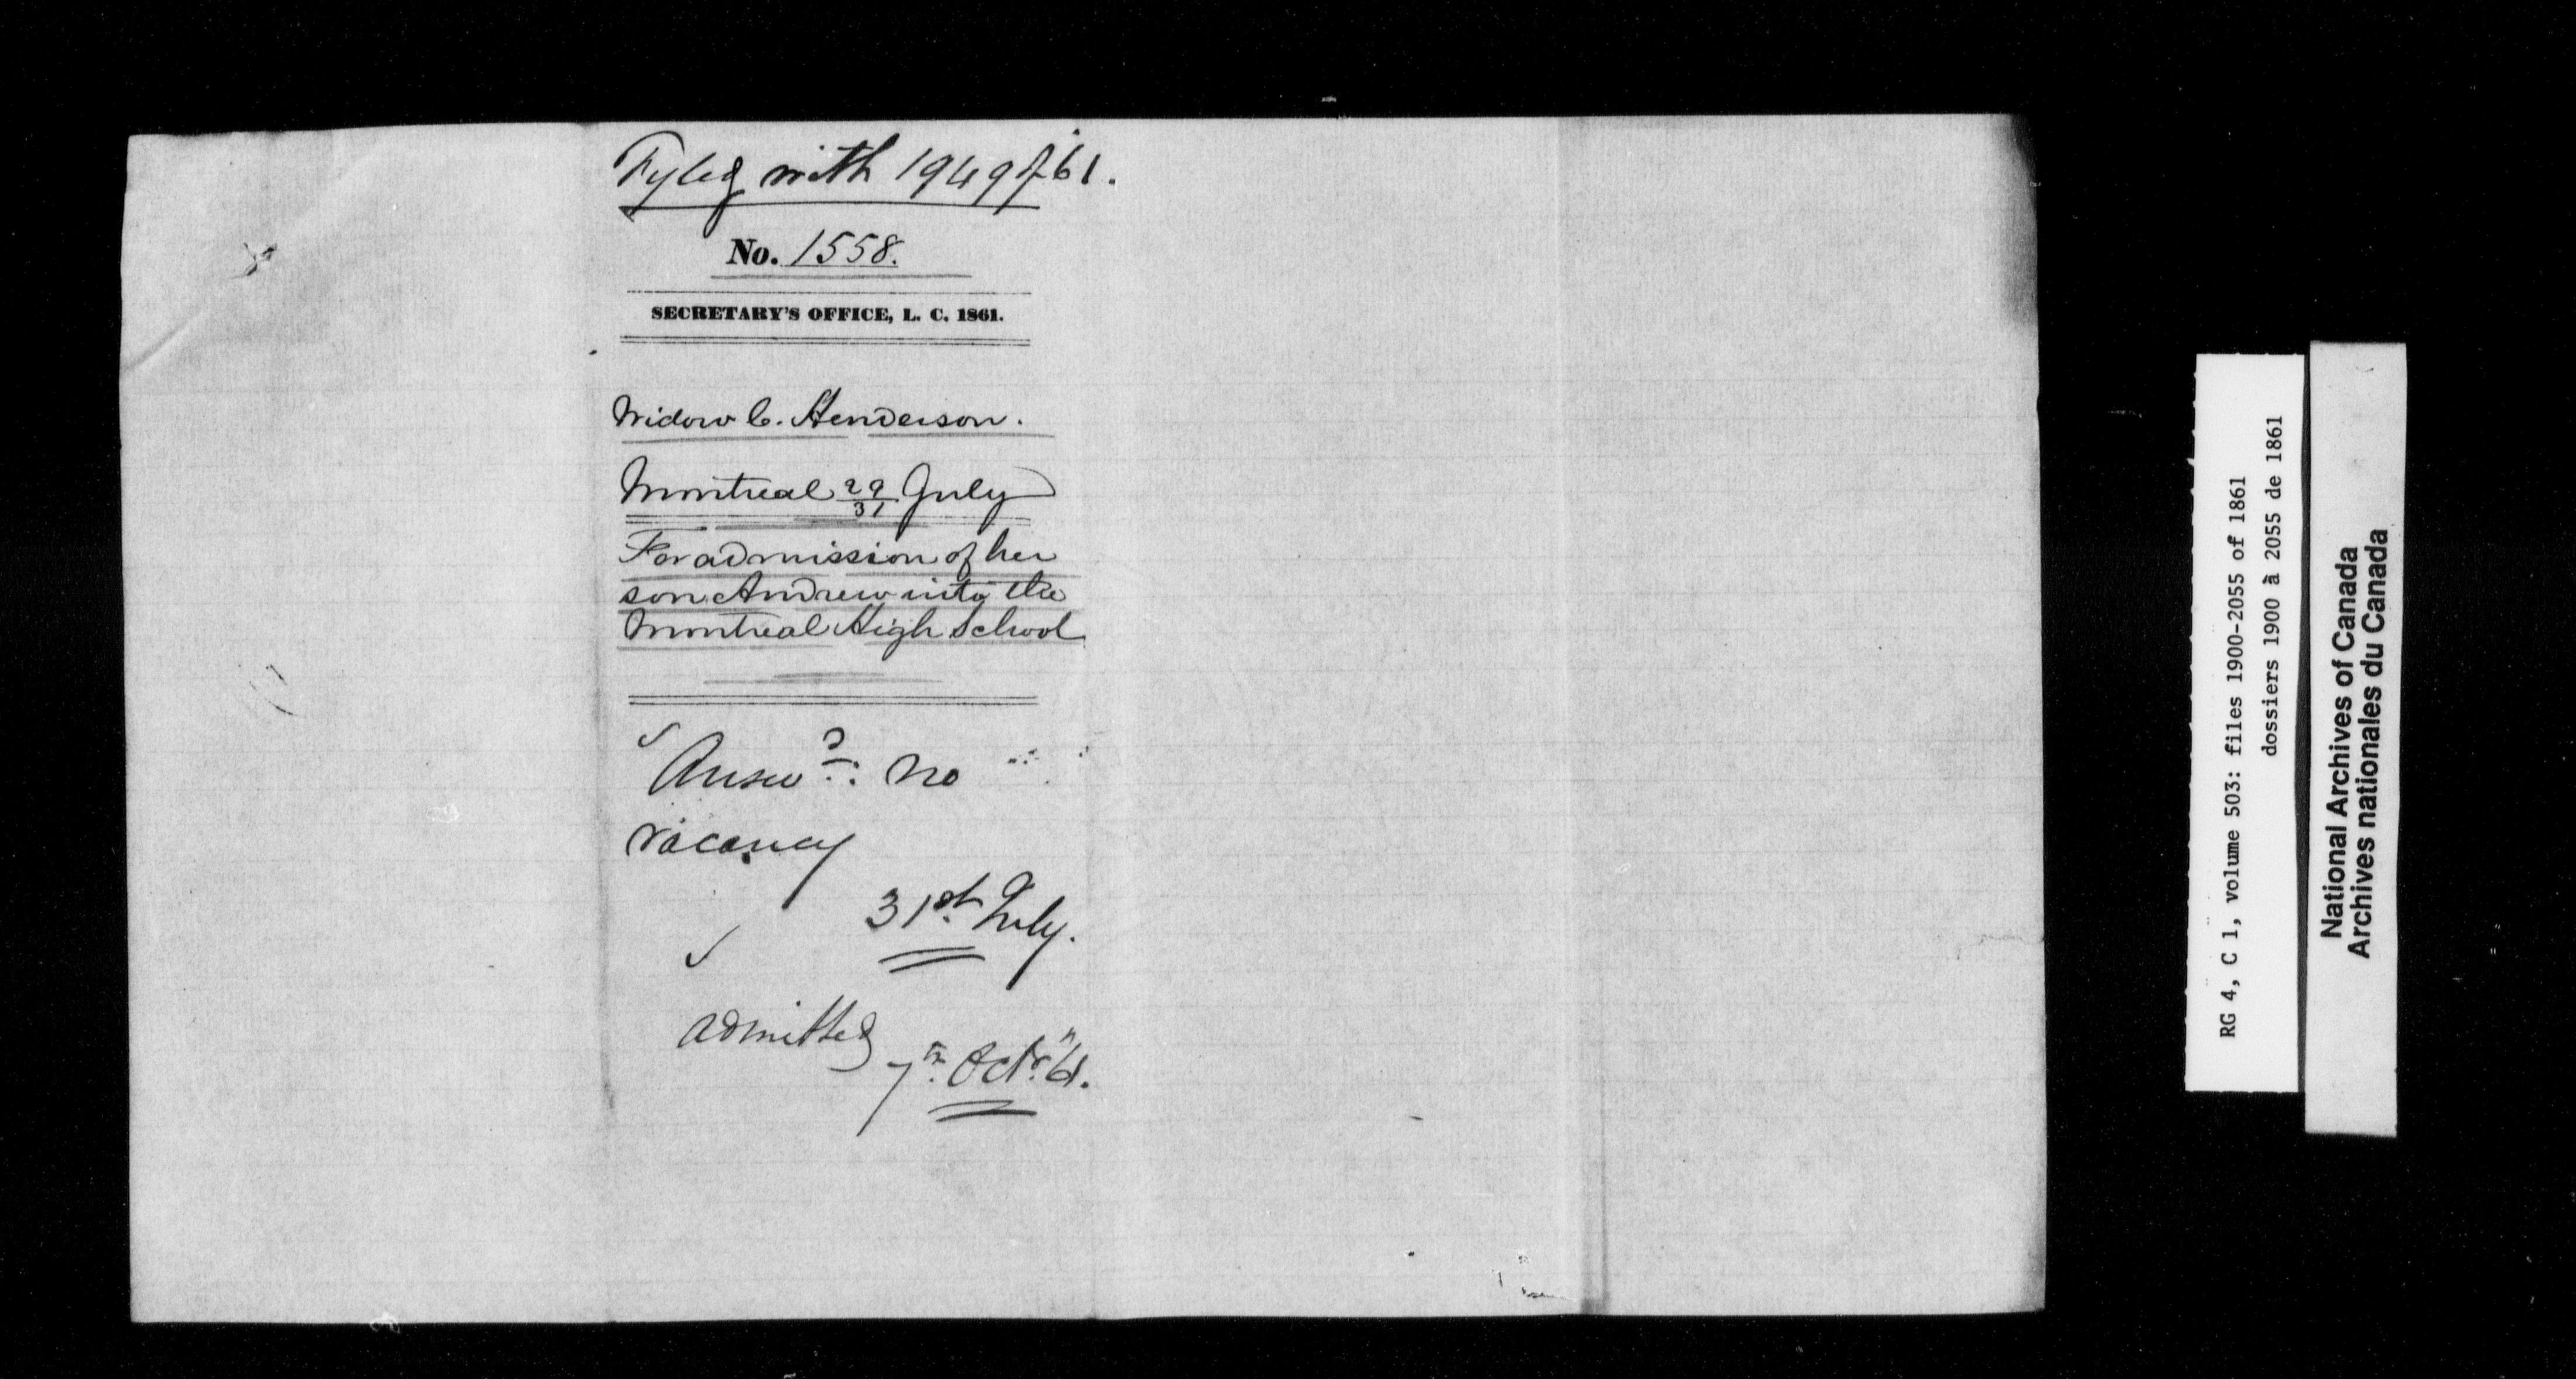 Fyled with 1949 of 61.
No. 1558.
SECRETARY'S OFFICE, L. C. 1861.
Widow C. Henderson.
Montreal 29/31 July
For admission of her
son Andrew into the
Montreal High School
Answd: no
vacancy
31st July.
admitted
7th Octr. "61.
RG 4, C 1, volume 503: files 1900-2055 of 1861
dossiers 1900 à 2055 de 1861
National Archives of Canada
Archives nationales du Canada